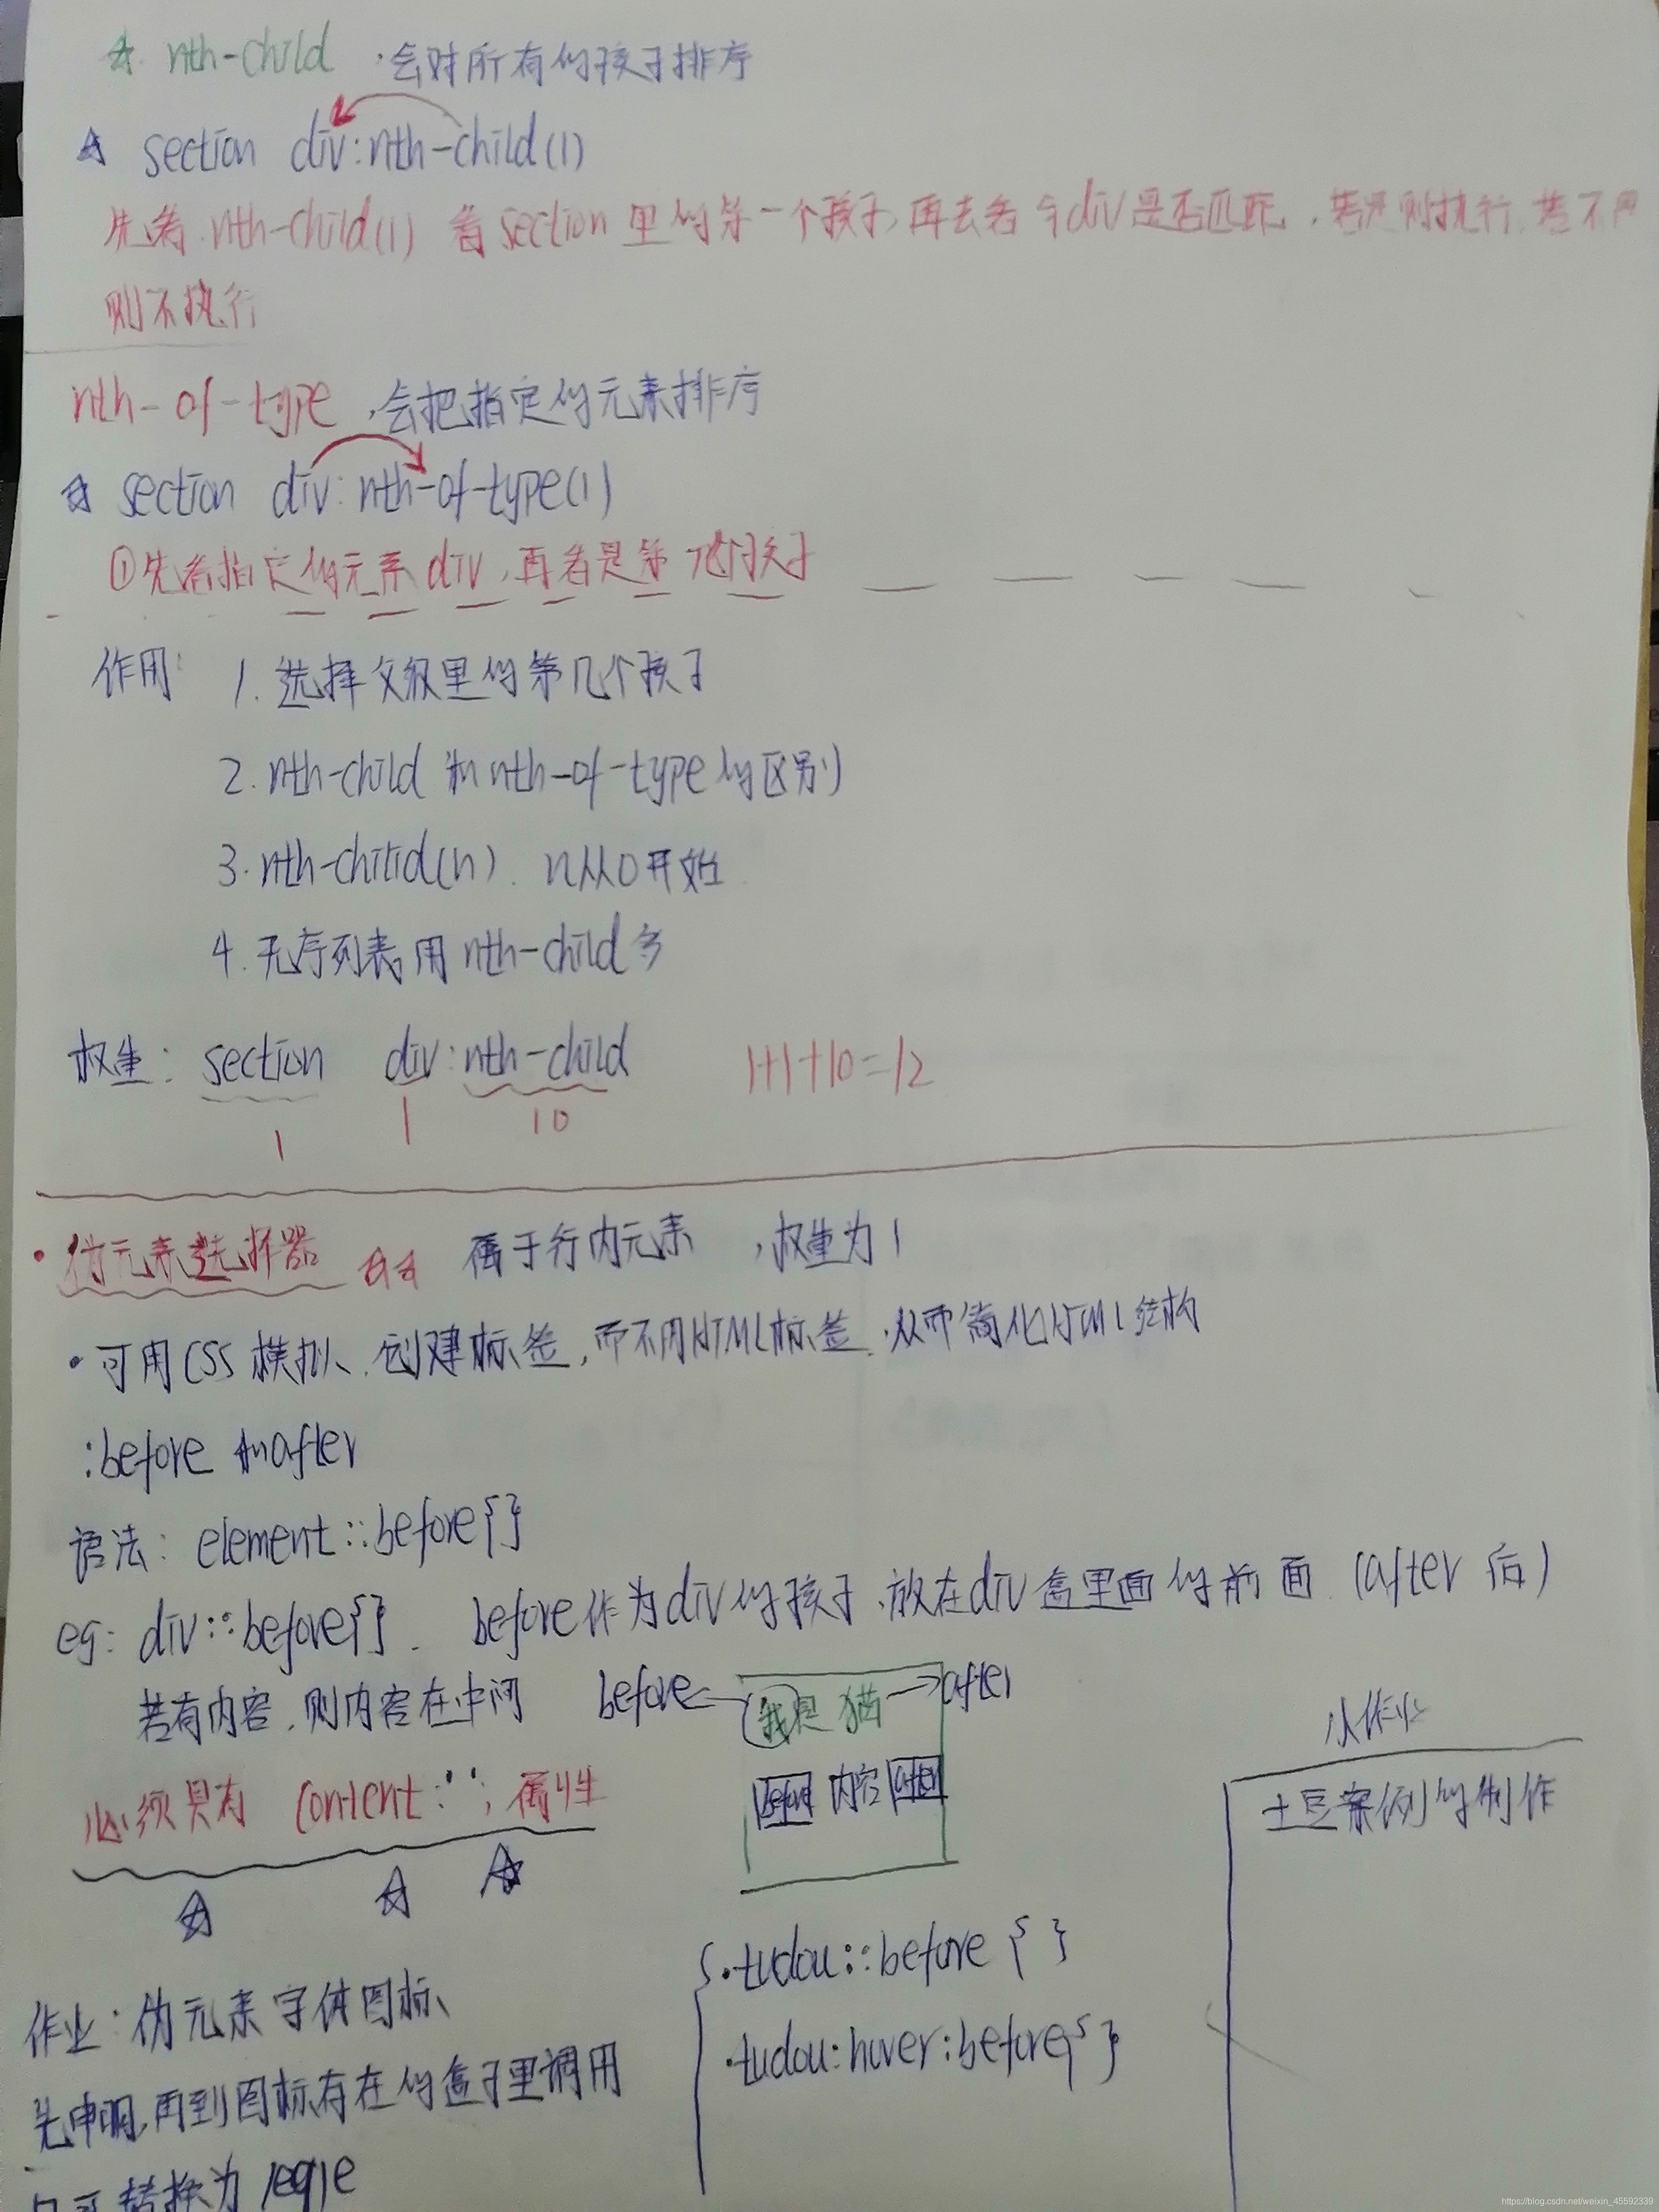 nth-child 会对所有的孩子排序
section div:nth-child(1)
先看 nth-child(1) 看section里的第一个孩子,再去看与div是否匹配,若是则执行,若不
则不执行
nth-of-type,会把指定的元素排序
section div:nth-of-type(1)
①先看指定的元素div,再看是第几个孩子
作用: 1.选择父级里的第几个孩子
2.nth-child 和nth-of-type的区别
3.nth-child(n). n从0开始
4.无序列表用nth-child多
权重: section div:nth-child 1+1+10=12
1 1 10
·伪元素选择器 属于行内元素 ,权重为1
·可用CSS模拟、创建标签,而不用HTML标签,从而简化HTML结构
:before和after
语法: element::before{}
eg: div::before{}. before作为div的孩子,放在div盒里面的前面 (after 后)
若有内容,则内容在中间 before 我是猫 after
before 内容 after
必须具有 content:''; 属性
作业
土豆案例的制作
.tudou::before { }
.tudou:hover:before{ }
作业:伪元素字体图标
先申明,再到图标存在的盒子里调用
转换为
https://blog.csdn.net/weixin_45592339